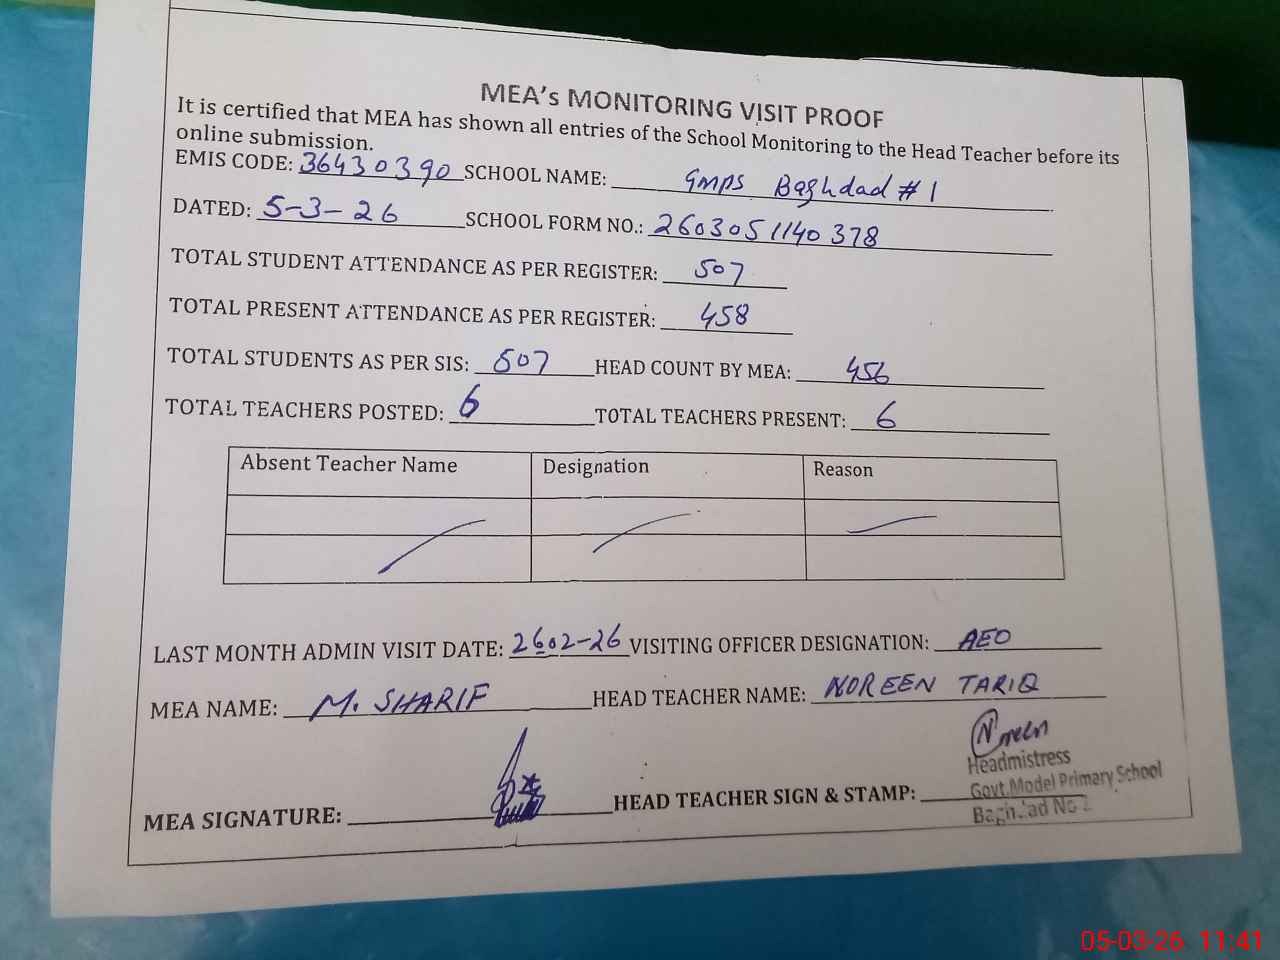 MEA's MONITORING VISIT PROOF
It is certified that MEA has shown all entries of the School Monitoring to the Head Teacher before its
online submission.
EMIS CODE: 36430390 SCHOOL NAME: GMPS Baghdad # 1
DATED: 5-3-26 SCHOOL FORM NO.: 2603051140378
TOTAL STUDENT ATTENDANCE AS PER REGISTER: 507
TOTAL PRESENT ATTENDANCE AS PER REGISTER: 458
TOTAL STUDENTS AS PER SIS: 507 HEAD COUNT BY MEA: 456
TOTAL TEACHERS POSTED: 6 TOTAL TEACHERS PRESENT: 6
Absent Teacher Name Designation Reason
LAST MONTH ADMIN VISIT DATE: 2602-26 VISITING OFFICER DESIGNATION: AEO
MEA NAME: M. SHARIF HEAD TEACHER NAME: NOREEN TARIQ
Noreen
Headmistress
MEA SIGNATURE: HEAD TEACHER SIGN & STAMP: Govt.Model Primary School
Baghdad No
05-03-26 11:41